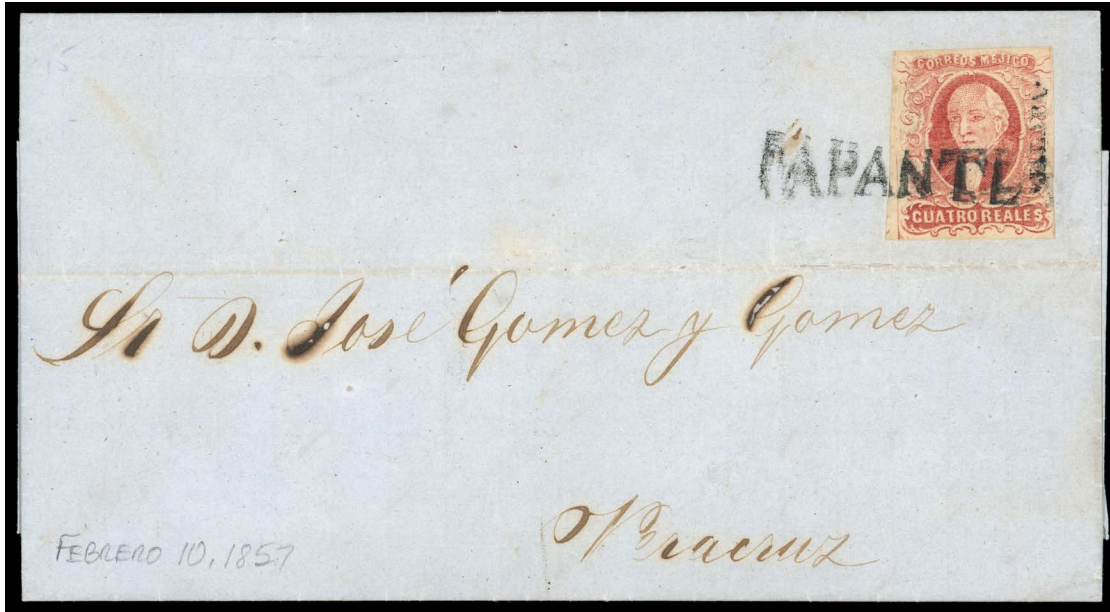 CORREOS MEJICO
PAPANTL
CUATRO REALES
Sr D. José Gomez y Gomez
Veracruz
FEBRERO 10, 1857